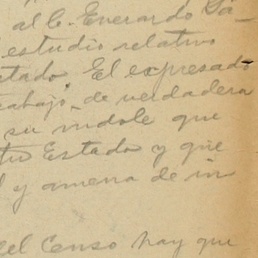 al C. Everardo Gá-
estudio relativo
stado El expresado
trabajo, de verdadera
su indole que
tu Estado y que
l y amena de in
del Censo hay que